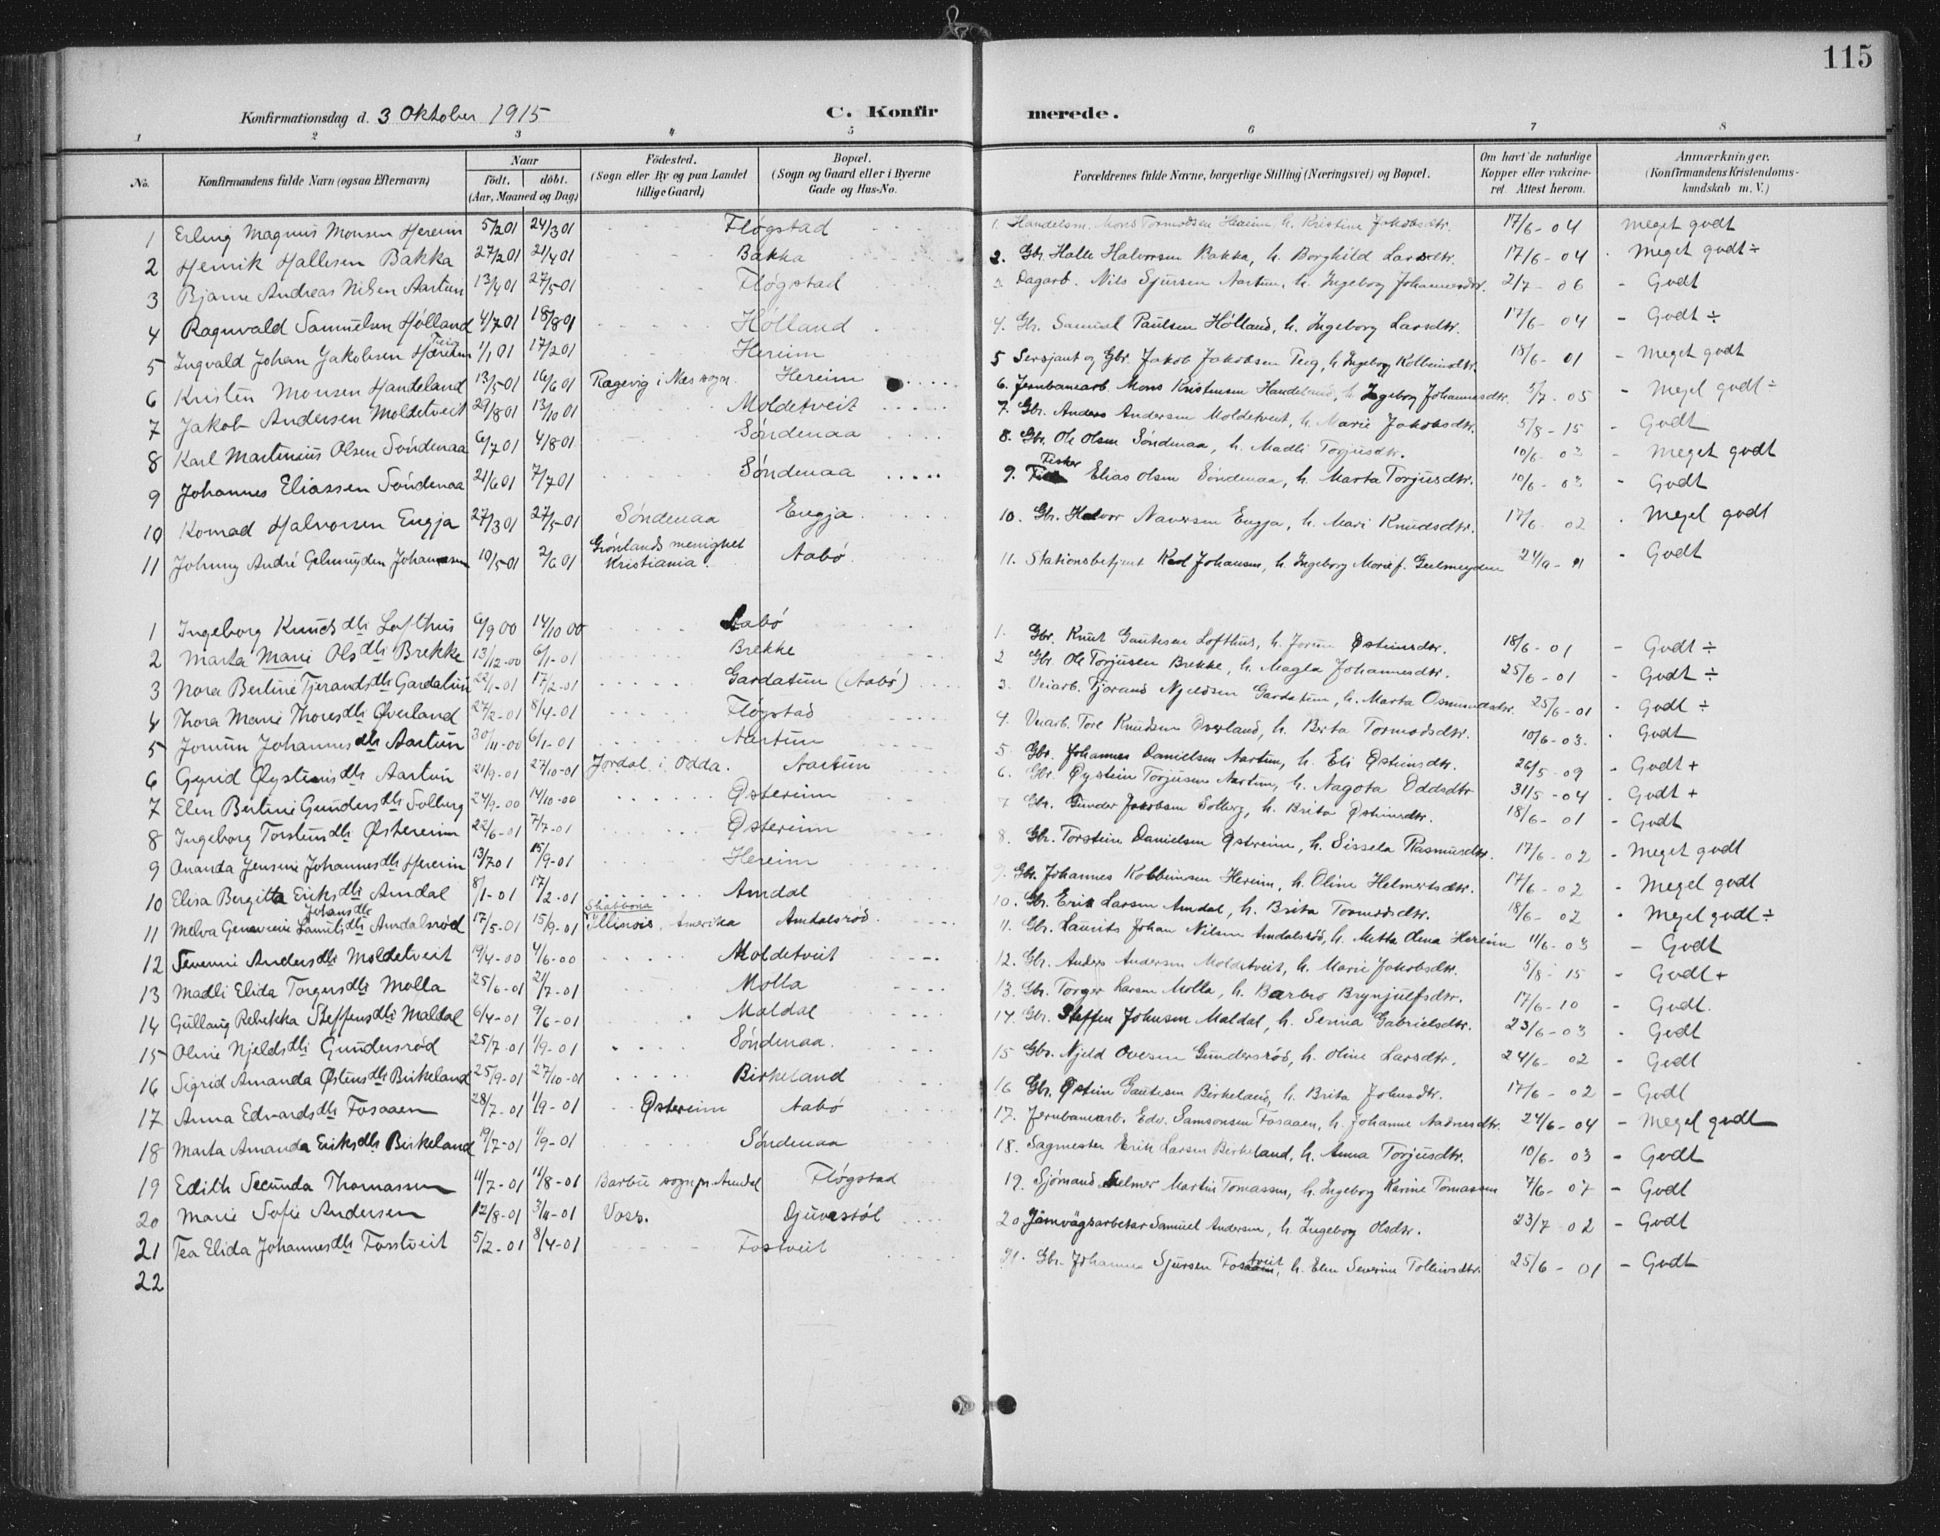 115
Konfirmationsdag d. 3 Oktober 1915
C. Konfir merede.
1 2 3 4 5 6 7 8
No.
Konfirmandens fulde Navn (ogsaa Efternavn)
Naar
født. døbt.
(Aar, Maaned og Dag)
Fødested.
(Sogn eller By og paa Landet
tillige Gaard)
Bopæl.
(Sogn og Gaard eller i Byerne
Gade og Hus-No.
Forældrenes fulde Navne, borgerlige Stilling (Næringsvei) og Bopæl.
Om havt de naturlige
Kopper eller vakcine-
ret. Attest herom.
Anmærkninger.
(Konfirmandens Kristendoms-
kundskab m. V.)
1 Erling Magnus Monsen Hereim 5/2 01 24/3 01 Fløgstad 1. Handelsm. Mons Tormodsen Hereim, h. Kristine Jakobsdtr. 17/6-04 Meget godt
2 Henrik Hallesen Bakka 27/2 01 21/4 01 Bakka 2. Gbr. Halle Halvorsen Bakka, h. Borghild Larsdtr. 17/6-04 Meget godt ÷
3 Bjarne Andreas Nilsen Aartun 13/4 01 27/5 01 Fløgstad 3 Dagarb. Nils Sjursen Aartun, h. Ingeborg Johannesdtr. 2/7-06 - Godt
4 Ragnvald Samuelsen Hølland 4/7 01 18/8 01 Hølland 4. Gbr. Samuel Paulsen Hølland, h. Ingeborg Larsdtr. 17/6-04 - Godt ÷
5 Ingvald Johan Jakobsen Teig 1/1 01 17/2 01 Hereim 5 Sersjant og Gbr. Jakob Jakobsen Teig, h. Ingeborg Kolbeinsdtr. 18/6-01 - Meget godt
6 Kristen Monsen Handeland 13/5 01 16/6 01 Ragevig i Næs sogn. Hereim 6. Jernbanearb. Mons Kristensen Handeland, h. Ingeborg Johannesdtr. 1/7-05 - Meget godt ÷
7 Jakob Andersen Moldetveit 29/8 01 13/10 01 Moldetveit 7. Gbr. Anders Andersen Moldetveit, h. Marie Jakobsdtr. 5/8-15 - Godt
8 Karl Martinius Olsen Søndenaa 6/7 01 4/8 01 Søndenaa 8. Gbr. Ole Olsen Søndenaa, h. Madli Torjusdtr. 10/6-03 - Meget godt
9 Johannes Eliassen Søndenaa 21/6 01 7/7 01 Søndenaa 9. Fisker Elias Olsen Søndenaa, h. Marta Torjusdtr. 10/6-03 - Godt
10 Konrad Halvorsen Engja 27/3 01 27/5-01 Søndenaa Engja 10. Gbr. Halvor Naversen Engja, h. Mari Knudsdtr. 17/6 02 Meget godt
11 Johnny André Gelmuyden Johansen 10/5 01 2/6 01 Grønlands menighet Kristiania. Aabø 11. Stationsbetjent Karl Johansen, h. Ingeborg Marie f. Geelmuyden 24/9-11 - Godt
1 Ingeborg Knudsdtr Lofthus 6/9 00 14/10 00 Aabø 1. Gbr. Knut Gautesen Lofthus, h. Jorun Østeinsdtr. 18/6-01 - Godt ÷
2 Marta Marie Olsdtr Brekke 13/12-00 6/1-01 Brekke 2 Gbr. Ole Torjusen Brekke, h. Magla Johannesdtr. 25/6-01 - Godt ÷
3 Nora Bertine Tjerandsdtr Gardatun 22/1-01 17/2-01 Gardatun (Aabø) 3. Veiarb. Tjerand Njeldsen Gardatun, h. Marta Osmundsdtr. 25/6-01 Godt ÷
4 Thora Marie Thoresdtr Øverland 27/2-01 8/4-01 Fløgstad 4. Veiarb. Tore Knudsen Øverland, h. Brita Tormodsdtr. 10/6-03. Godt
5 Jorunn Johannesdtr Aartun 30/11-00 6/1-01 Aartun 5. Gbr. Johannes Danielsen Aartun, h. Eli Østeinsdtr. 26/5-09 - Godt +
6 Gyrid Øysteinsdtr Aartun 21/9-01 27/10-01 Jordal i Odda. Aartun 6. Gbr. Øystein Torjusen Aartun, h. Aagota Oddsdtr 31/5-04 Godt +
7 Elen Bertine Gundersdtr Solberg 24/9-00 14/10-00 Østereim 7 Gbr. Gunder Jakobsen Solberg, h. Brita Østeinsdtr. 18/6-01 - Godt
8 Ingeborg Torsteinsdtr Østereim 22/6-01 7/7-01 Østereim 8. Gbr. Torstein Danielsen Østreim, h. Sissela Rasmusdtr. 17/6-02 - Meget godt
9 Ananda Jensine Johannesdtr Hereim 13/7 01 15/9-01 Hereim 9. Gbr. Johannes Kolbeinsen Hereim, h. Oline Helmertsdtr. 17/6-02 - Meget godt
10 Elisa Bergitta Eriksdtr Amdal 8/1-01 17/2-01 Amdal 10. Gbr. Erik Larsen Amdal, h. Brita Tormodsdtr. 18/6-02 Meget godt ÷
11 Melva Genevieve Lauritsdtr Johansdtr Amdalsrød 17/5-01 15/9-01 Shabbona Illinois, Amerika Amdalsrød 11. Gbr. Laurits Johan Nilsen Amdalsrød, h. Metta Olena Hereim 11/6-03 - Godt
12 Severine Andersdtr Moldetveit 19/4-00 4/6-00 Moldetveit 12. Gbr. Anders Andersen Moldetveit, h. Marie Jakobsdtr. 5/8-15 - Godt +
13 Madli Elida Torgersdtr Molla 25/6-01 21/7-01 Molla 13. Gbr. Torger Larsen Molla, h. Barbro Brynjulfsdtr. 17/6-10 - Godt.
14 Gullaug Rebekka Steffensdtr Maldal 6/4-01 9/6-01 Maldal 14. Gbr. Steffen Johnsen Maldal, h. Serina Gabrielsdtr. 23/6-03 - Godt
15 Oline Njeldsdtr Gundersrød 25/7-01 1/9-01 Søndenaa. 15 Gbr. Njeld Ovesen Gundersrød, h. Oline Larsdtr. 24/6-02 - Godt
16 Sigrid Amanda Østensdtr Birkeland 25/9-01 27/10-01 Birkeland 16 Gbr. Østein Gautesen Birkeland, h. Brita Johnsdtr. 17/6-02 - Godt
17 Anna Edvardsdtr Fosaaen 28/7-01 1/9-01 Østereim Aabø 17. Jernbanearb. Edv. Samsonsen Fosaaen, h. Johanne Aadnesdtr. 24/6-04 - Meget godt
18 Marta Amanda Eriksdtr Birkeland 19/7-01 1/9-01 Søndenaa 18. Sagmester Erik Larsen Birkeland, h. Anna Torjusdtr. 10/6-03 - Godt
19 Edith Secunda Thomassen 11/7-01 11/8-01 Barbu sogn pr. Arendal Fløgstad 19. Sjømand Selmer Martin Tomassen, h. Ingeborg Karine Tomassen 7/6-07 - Godt
20 Marie Sofie Andersen 12/8-01 3/4-01 Voss. Djuvestøl 20 Jämvägsarbetar Samuel Andersen, h. Ingeborg Olsdtr. 23/7-02 - Godt
21 Tea Elida Johannesdtr Fosstveit 5/2-01 8/4-01 Fostveit 21. Gbr. Johannes Sjursen Fostveit, h. Elen Severine Tollevsdtr. 25/6-01 - Godt
22